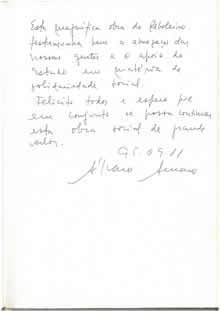 Esta magnífica obra do Reboleiro
testemunha bem a abnegação das
nossas gentes e o apoio do
Estado em matéria de
solidariedade social.
Felicito todos e espero que
em conjunto se possa continuar
esta obra social de grande
valor.
05.09.11
Álvaro Amaro